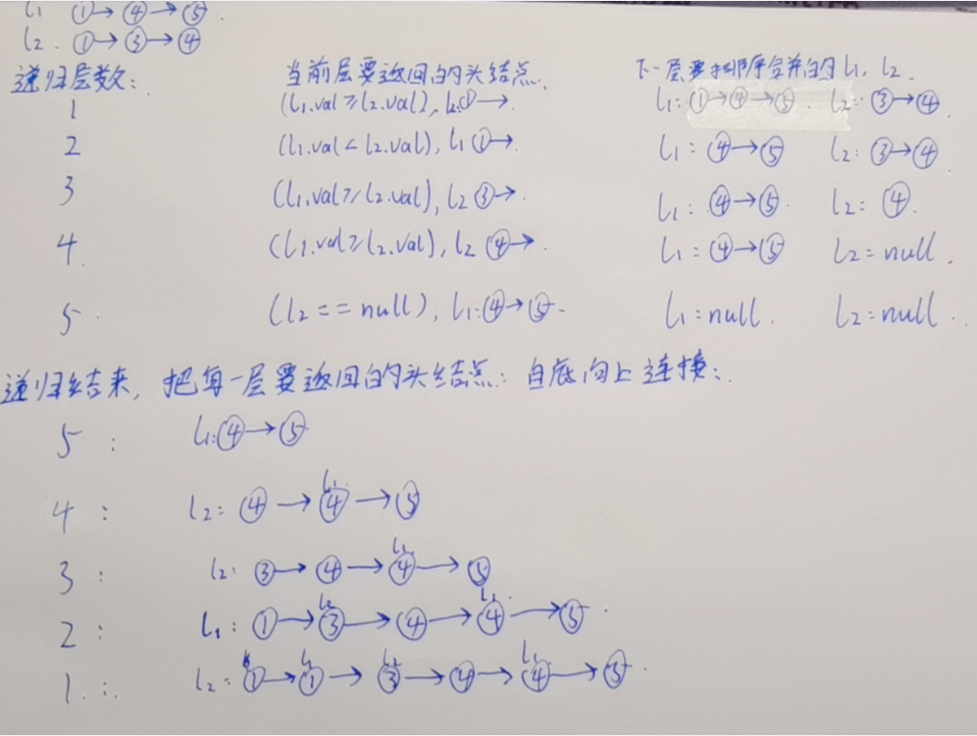 l1 ①→④→⑤
l2. ①→③→④
递归层数: 当前层要返回的头结点. 下一层要排序合并的l1, l2.
1 (l1.val≥l2.val), l2①→. l1:①→④→⑤. l2:③→④.
2 (l1.val<l2.val), l1①→. l1:④→⑤ l2:③→④
3 (l1.val≥l2.val), l2③→. l1:④→⑤. l2:④.
4. (l1.val≥l2.val), l2④→. l1:④→⑤ l2=null.
5. (l2==null), l1:④→⑤. l1=null. l2=null.
递归结束, 把每一层要返回的头结点: 自底向上连接:.
5: l1:④→⑤
l1
4: l2:④→④→⑤
l1
3: l2:③→④→④→⑤
l2 l1
2: l1:①→③→④→④→⑤.
l1 l2 l1
1.: l2:①→①→③→④→④→⑤.